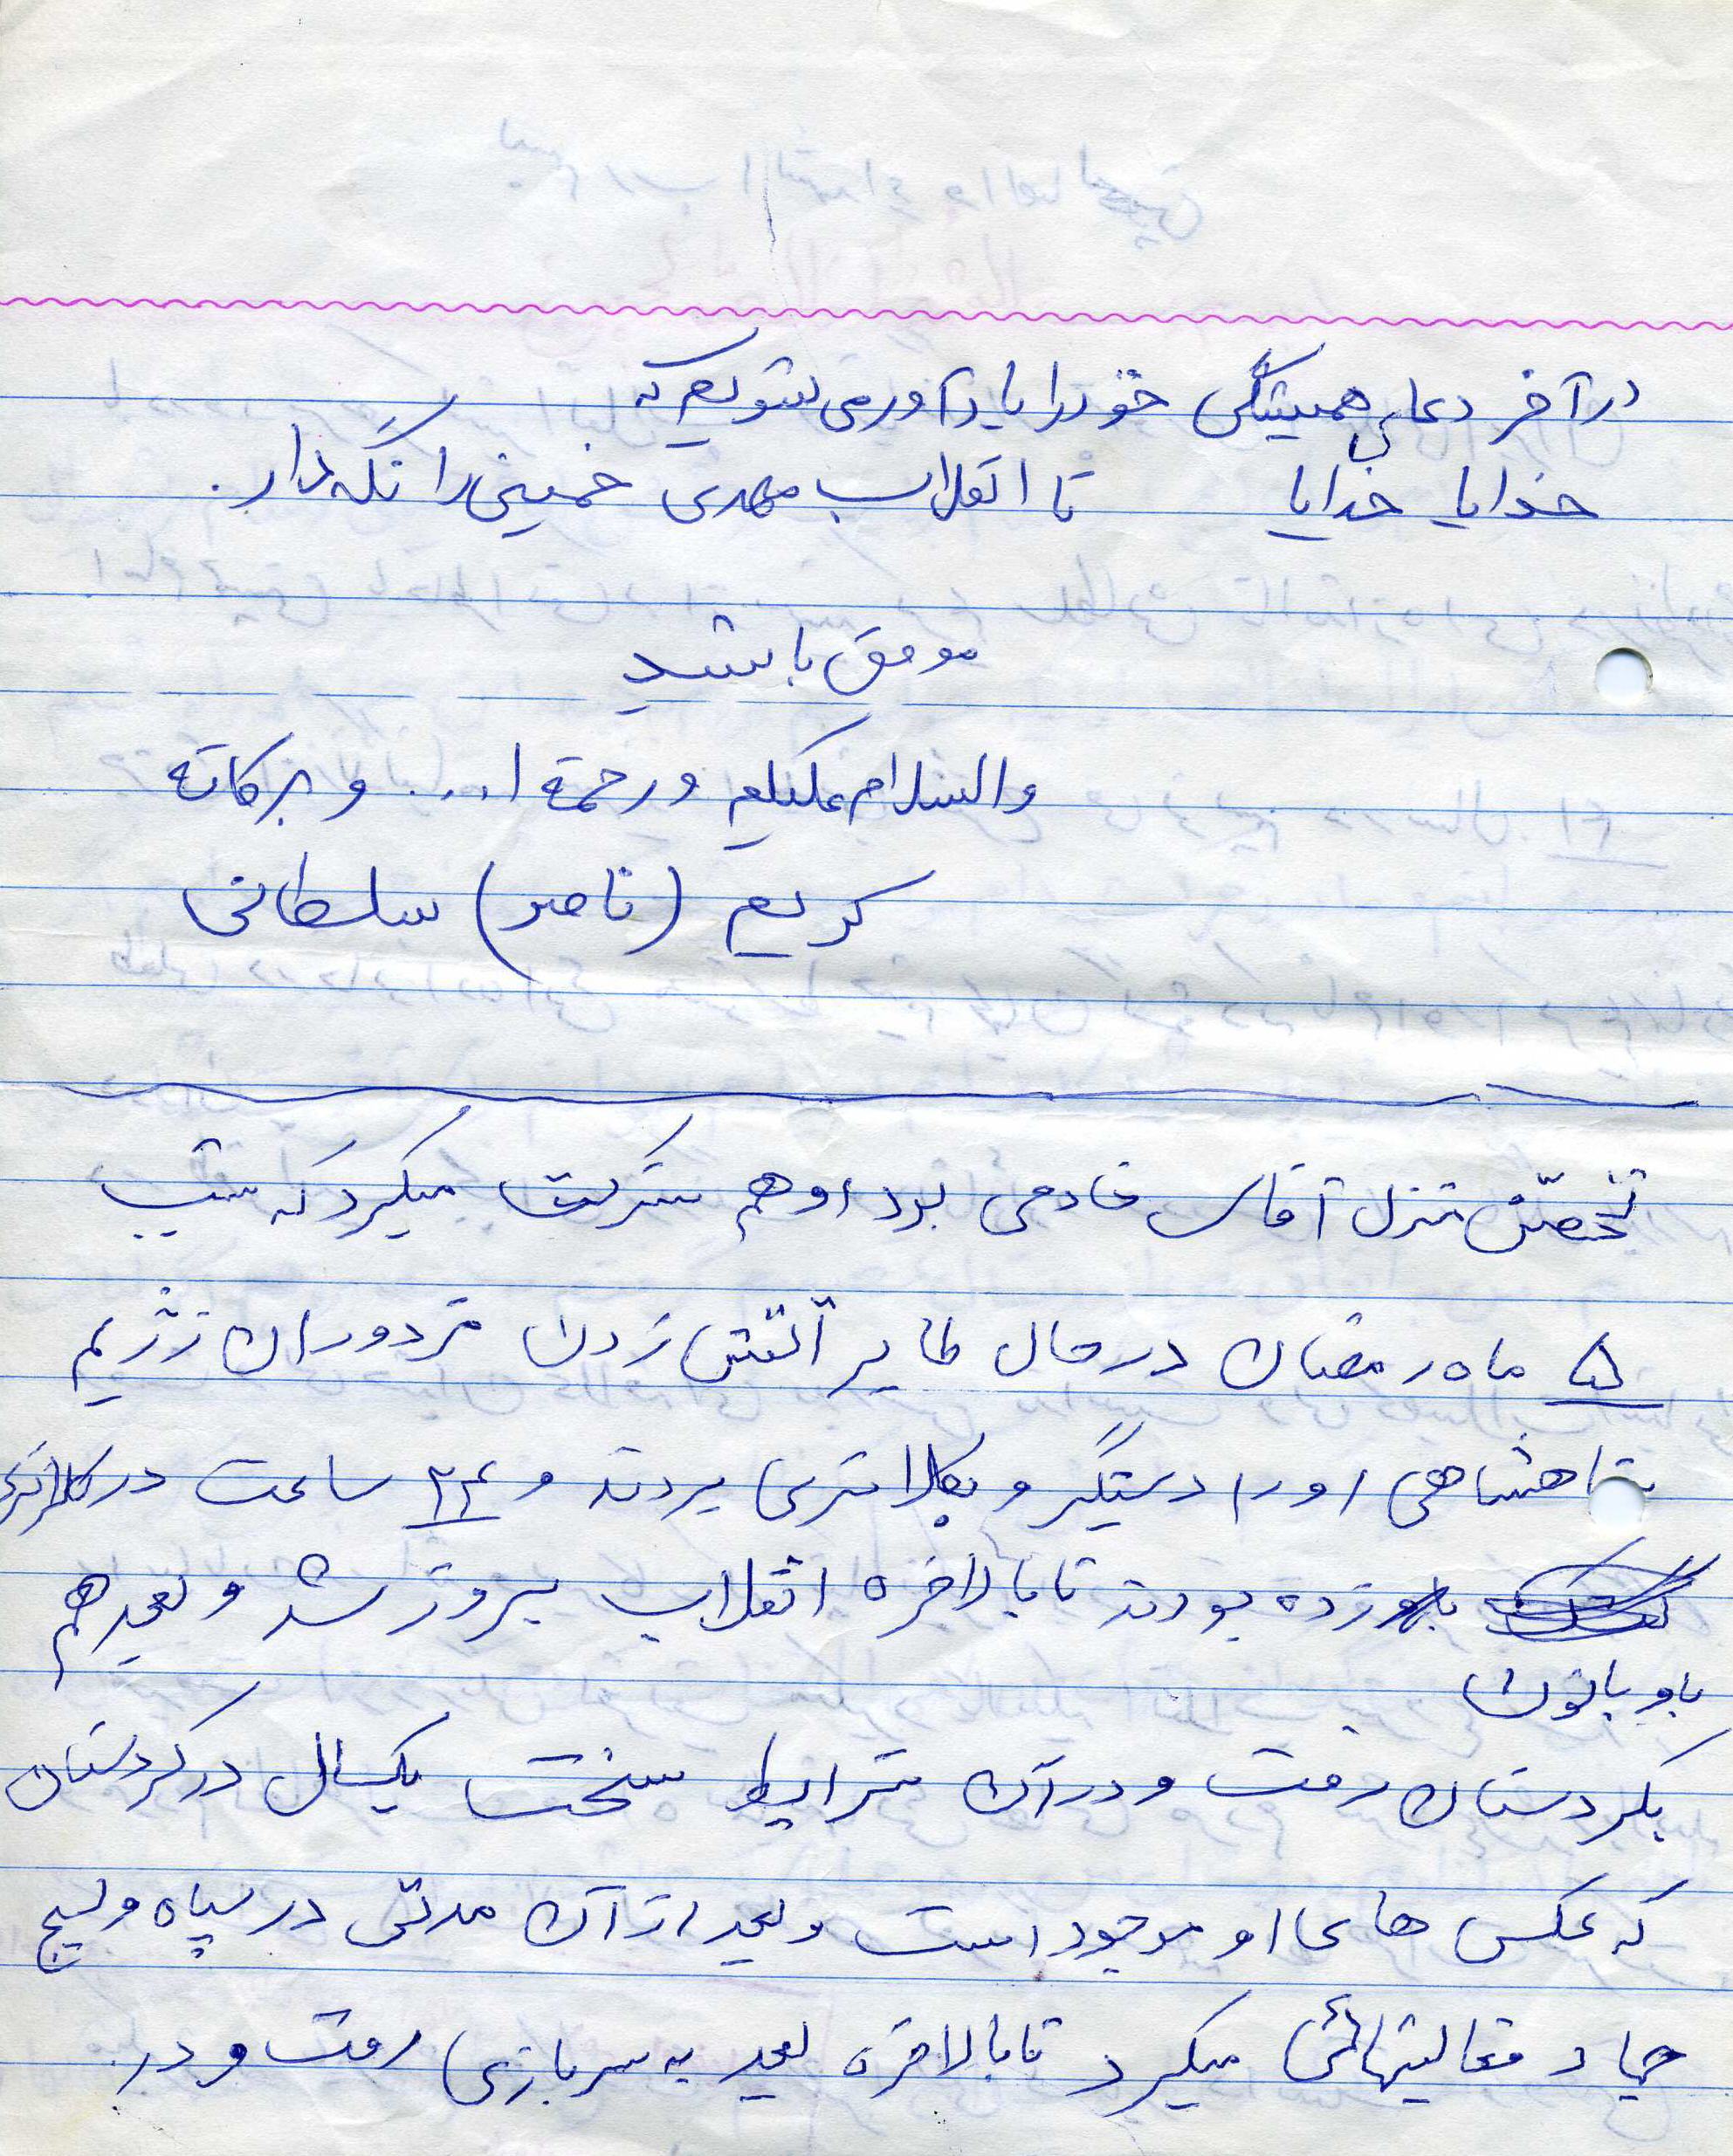 در آخر دعای همیشگی خود را یادآور می شویم که
خدایا خدایا تا انقلاب مهدی خمینی را نگهدار.
موفق باشید
والسلام علیکم ورحمة ا... و برکاته
کریم (ناصر) سلطانی
تحصّن منزل آقای خادمی بود او هم شرکت میکرد که شب
۵ ماه رمضان در حال طایر آتش زدن مزدوران رژیم
شاهنشاهی او را دستگیر و بکلانتری بردند و ۲۴ ساعت در کلانتری
باو باتون زده بودند تا بالاخره انقلاب پیروز شد و بعد هم
بکردستان رفت و در آن شرایط سخت یکسال در کردستان
که عکس های او موجود است و بعد از آن مدتی در سپاه و بسیج
جهاد فعالیتهائی میکرد تا بالاخره بعد به سربازی رفت و در